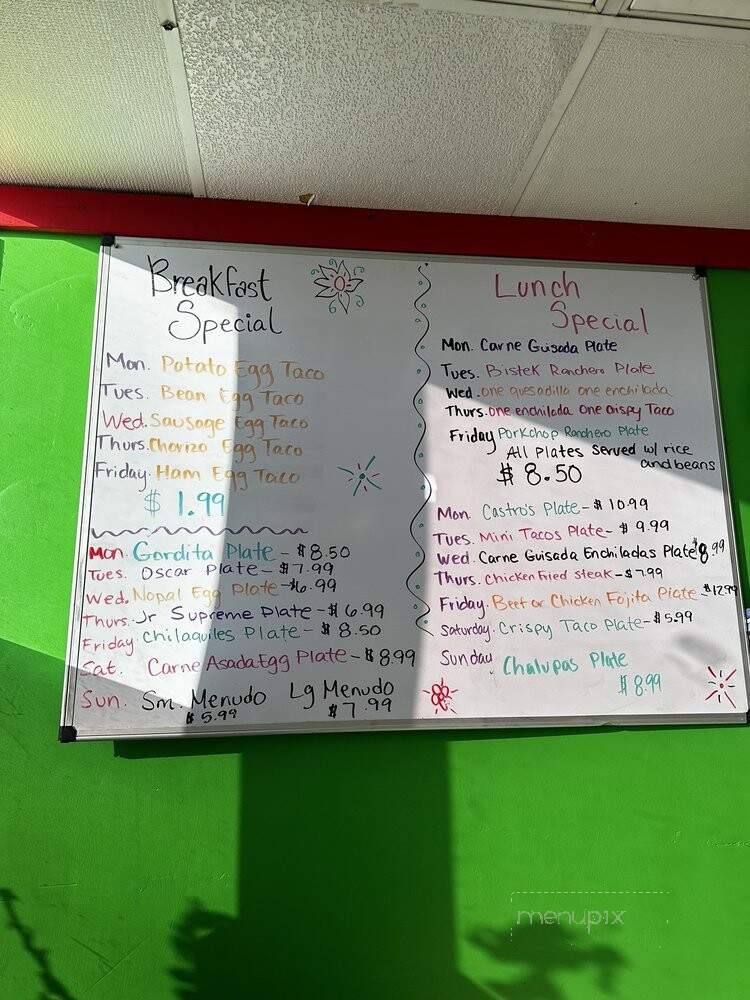 Breakfast
Special
Mon. Potato Egg Taco
Tues. Bean Egg Taco
Wed. Sausage Egg Taco
Thurs. Chorizo Egg Taco
Friday. Ham Egg Taco
$ 1.99
Mon. Gordita Plate - $8.50
Tues. Oscar Plate - $7.99
Wed. Nopal Egg Plate - $6.99
Thurs. Jr Supreme Plate - $6.99
Friday. Chilaquiles Plate - $8.50
Sat. Carne Asada Egg Plate - $8.99
Sun. Sm. Menudo Lg Menudo
$5.99 $7.99
Lunch
Special
Mon. Carne Guisada Plate
Tues. Bistek Ranchero Plate
Wed. one quesadilla one enchilada
Thurs. one enchilada One crispy Taco
Friday Porkchop Ranchero Plate
All Plates served w/ rice
and beans
$8.50
Mon. Castro's Plate - $10.99
Tues. Mini Tacos Plate - $9.99
Wed. Carne Guisada Enchiladas Plate $8.99
Thurs. Chicken Fried Steak - $7.99
Friday. Beef or Chicken Fajita Plate - $12.99
Saturday. Crispy Taco Plate - $5.99
Sunday Chalupas Plate
$8.99
menupix